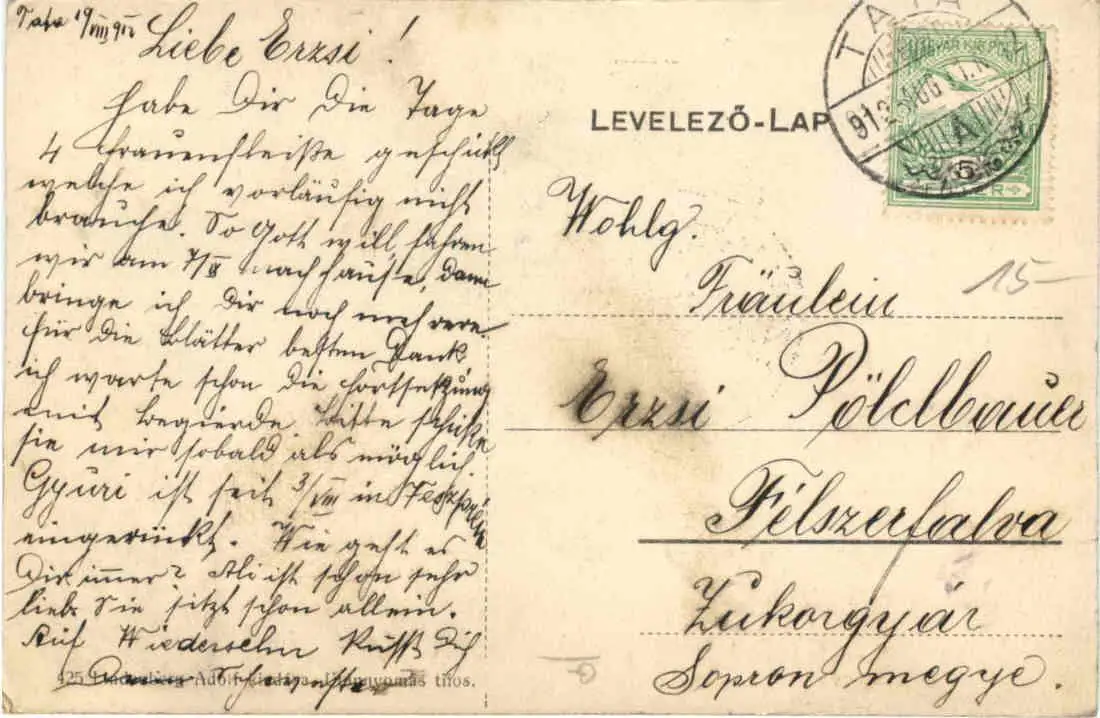 Tata 19/VIII 912
Liebe Erzsi!
habe Dir die Tage
4 geschickt
welche ich vorläufig nicht
brauche. So Gott will, fahren
wir am 7/IX nach hause, dann
bringe ich Dir noch mehrere
für die Blätter besten Dank.
ich warte schon die Fortsetzung
mit Begierde. Bitte schicke
sie mir sobald als möglich.
Gyuri ist seit 3/VIII in
eingerückt. Wie geht es
Dir immer? Ali ist schon sehr
lieb. Sie sitzt schon allein.
Auf Wiedersehn küsst Dich
Schwester
425 Adolf kiadása. tilos.
LEVELEZŐ-LAP
TATA
MAGYAR KIR. POSTA
Wohlg.
Fräulein
15-
Erzsi Pöldlbauer
Félszerfalva
Zukorgyár
Sopron megye.